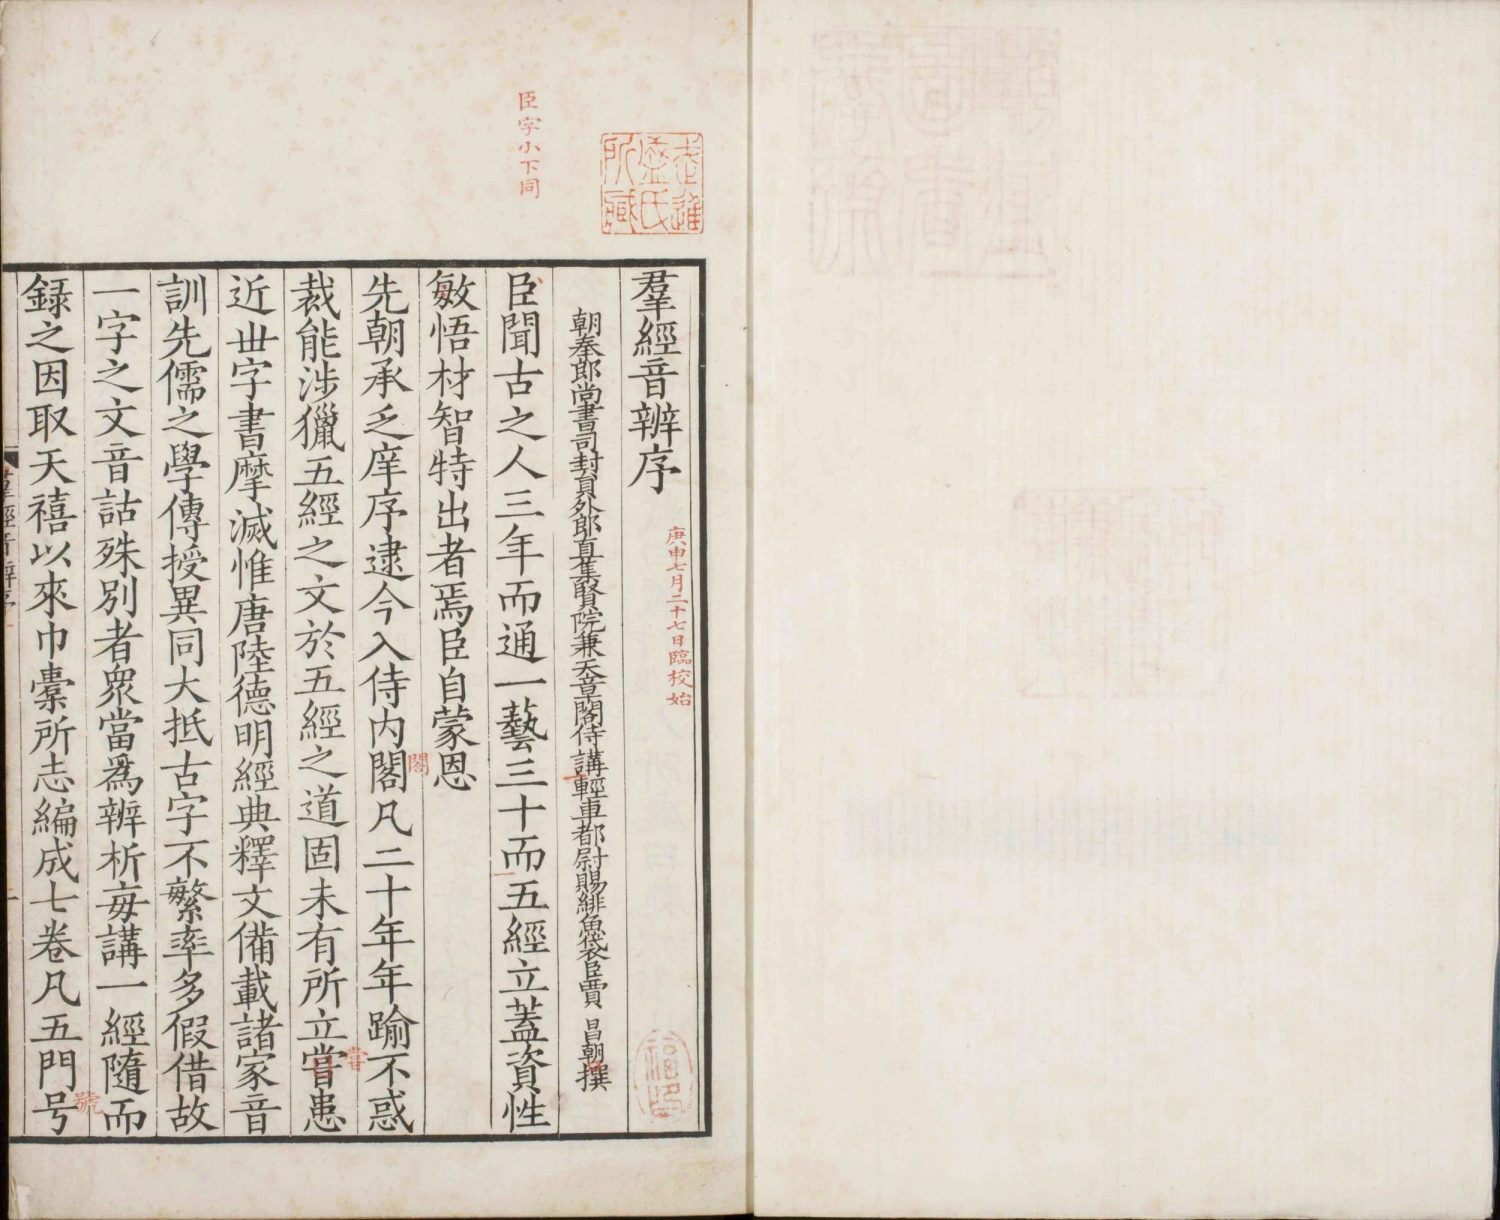 臣字小下同
武進
盛氏
所藏
羣經音辨序
庚申七月二十七日臨校始
朝奉郎尚書司封員外郎直集賢院兼天章閣侍講輕車都尉賜緋魚袋臣賈 昌朝撰
臣聞古之人三年而通一藝三十而五經立蓋資性
敏悟材智特出者焉臣自蒙恩
先朝承乏庠序逮今入侍內閣凡二十年年踰不惑
閣
裁能涉獵五經之文於五經之道固未有所立嘗患
嘗
近世字書摩滅惟唐陸德明經典釋文備載諸家音
訓先儒之學傳授異同大抵古字不繁率多假借故
一字之文音詁殊別者衆當爲辨析每講一經隨而
錄之因取天禧以來巾橐所志編成七卷凡五門号
號
羣經音辨序